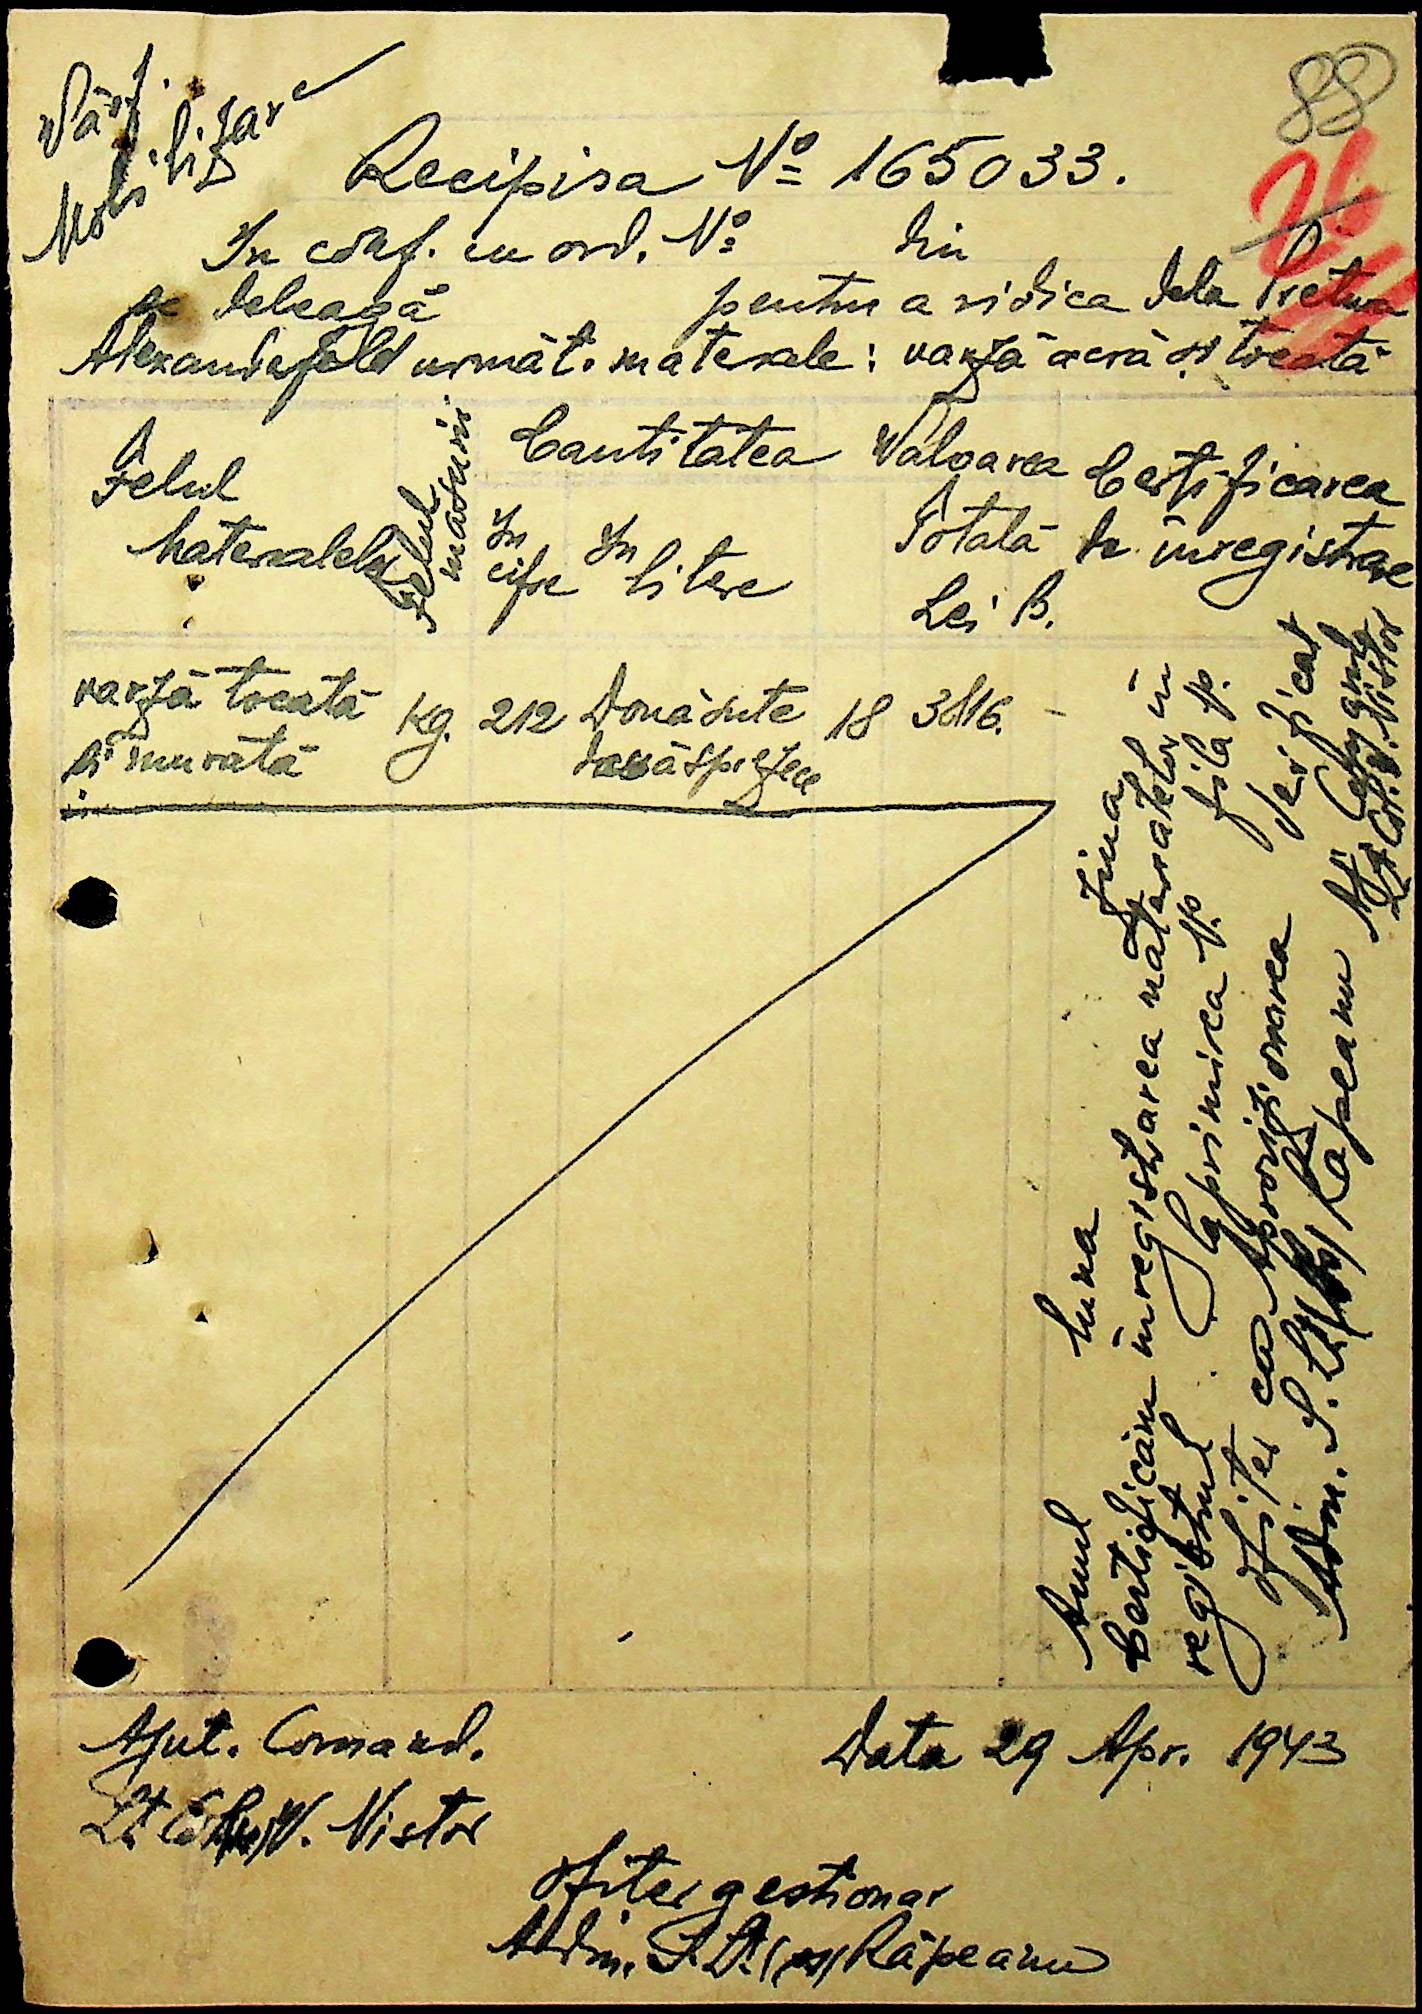 Vârf.
Mobilizare
88
Recipisa No 165033.
In conf. cu ord. No din
se deleagă pentru a ridica dela Pretura
Alexanderfeld următ. materiale: varză acră și tocată
Felul
Materialelor
Felul
măsurii
Cantitatea
In
cifre
In
litere
Valoarea
Totală
Lei B.
Certificarea
de înregistrare
varză tocată
și murată
Kg. 212 Două sute
douăsprezece
18 3816.-
Anul luna ziua
Certificăm înregistrarea materialelor în
registrul la primirea No. fila No.
Ofițer cu Aprovizionarea Verificat
Adm. S. Lt. (ss) Râpeanu
Lt. Col. V. Nistor
Ajut. Comand.
Lt Col. (ss) V. Nistor
Data 29 Apr. 1943
Ofițer gestionar
Adm. S. Lt. (ss) Râpeanu